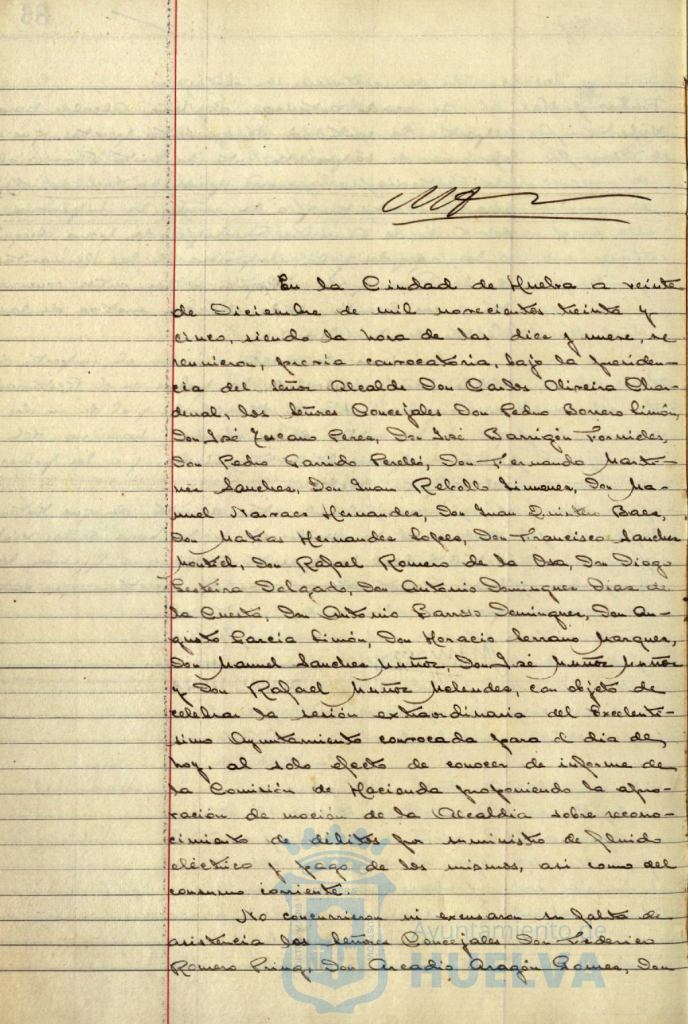 En la Ciudad de Huelva a veinte
de Diciembre de mil novecientos treinta y
cinco, siendo la hora de las diez y nueve, se
reunieron, previa convocatoria, bajo la presiden-
cia del Señor Alcalde Don Carlos Oliveira Char-
denal, los Señores Concejales Don Pedro Borrero Limón,
Don José Toscano Perez, Don José Barrigón Fornieles,
Don Pedro Garrido Perelló, Don Fernando Marti-
nez Sanchez, Don Juan Rebollo Jimenez, Don Ma-
nuel Narvaez Hernandez, Don Juan Quintero Baez,
Don Matias Hernandez Lopez, Don Francisco Sanchez
Montiel, Don Rafael Romero de la Osa, Don Diogo
Delgado, Don Antonio Dominguez Diaz de
la Cuesta, Don Antonio Barroso Dominguez, Don Au-
gusto Garcia Limón, Don Horacio Serrano Marquez,
Don Manuel Sanchez Muñoz, Don José Muñoz Muñoz
y Don Rafael Muñoz Melendez, con objeto de
celebrar la sesión extraordinaria del Excelentí-
simo Ayuntamiento convocada para el dia de
hoy, al solo efecto de conocer de informe de
la Comisión de Hacienda proponiendo la apro-
vación de moción de la Alcaldía sobre recono-
cimiento de débitos por suministro de fluido
eléctrico y pago de los mismos, asi como del
consumo corriente.
No concurrieron ni excusaron su falta de
asistencia los Señores Concejales Don Federico
Romero Don Arcadio Aragón Gomez, Don
Ayuntamiento de
HUELVA